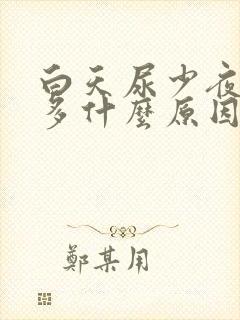 白天尿少夜
多什麼原因
鄭某用